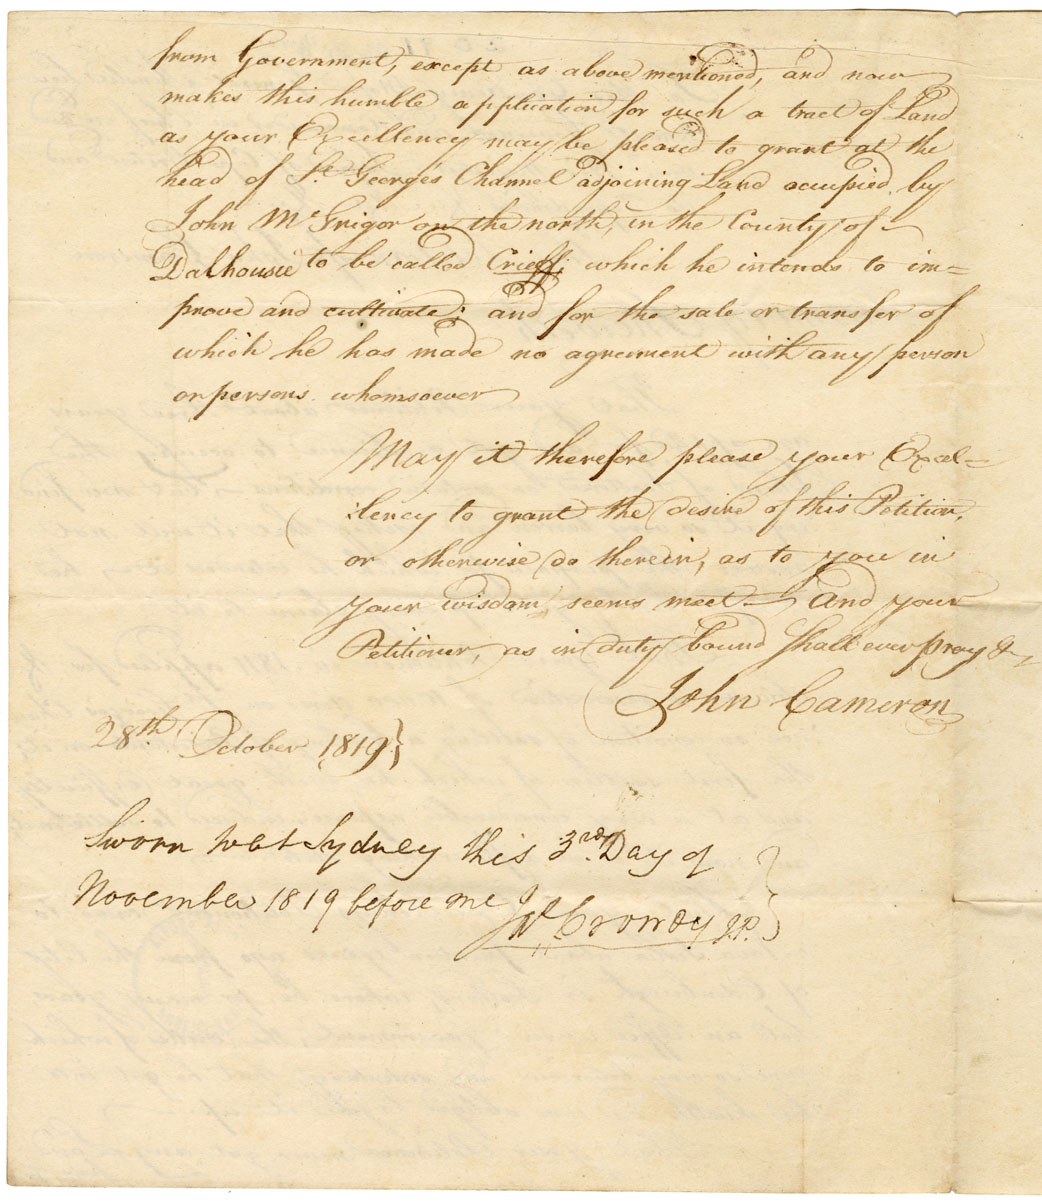 from Government, except as above mentioned, and now
makes this humble application for such a tract of Land
as your Excellency may be pleased to grant at the
head of St. George's Channel adjoining Land occupied by
John McGrigor on the north, in the County of
Dalhousie to be called Crieff, which he intends to im=
prove and cultivate; and for the sale or transfer of
which he has made no agreement with any person
or persons whomsoever
May it therefore please your Excel=
lency to grant the desire of this Petition,
or otherwise do therein, as to you in
your wisdom, seems meet— And your
Petitioner, as in duty bound shall ever pray &c
John Cameron
28th. October 1819}
Sworn to at Sydney this 3rd. Day of
November 1819 before me
Crowdy JP.